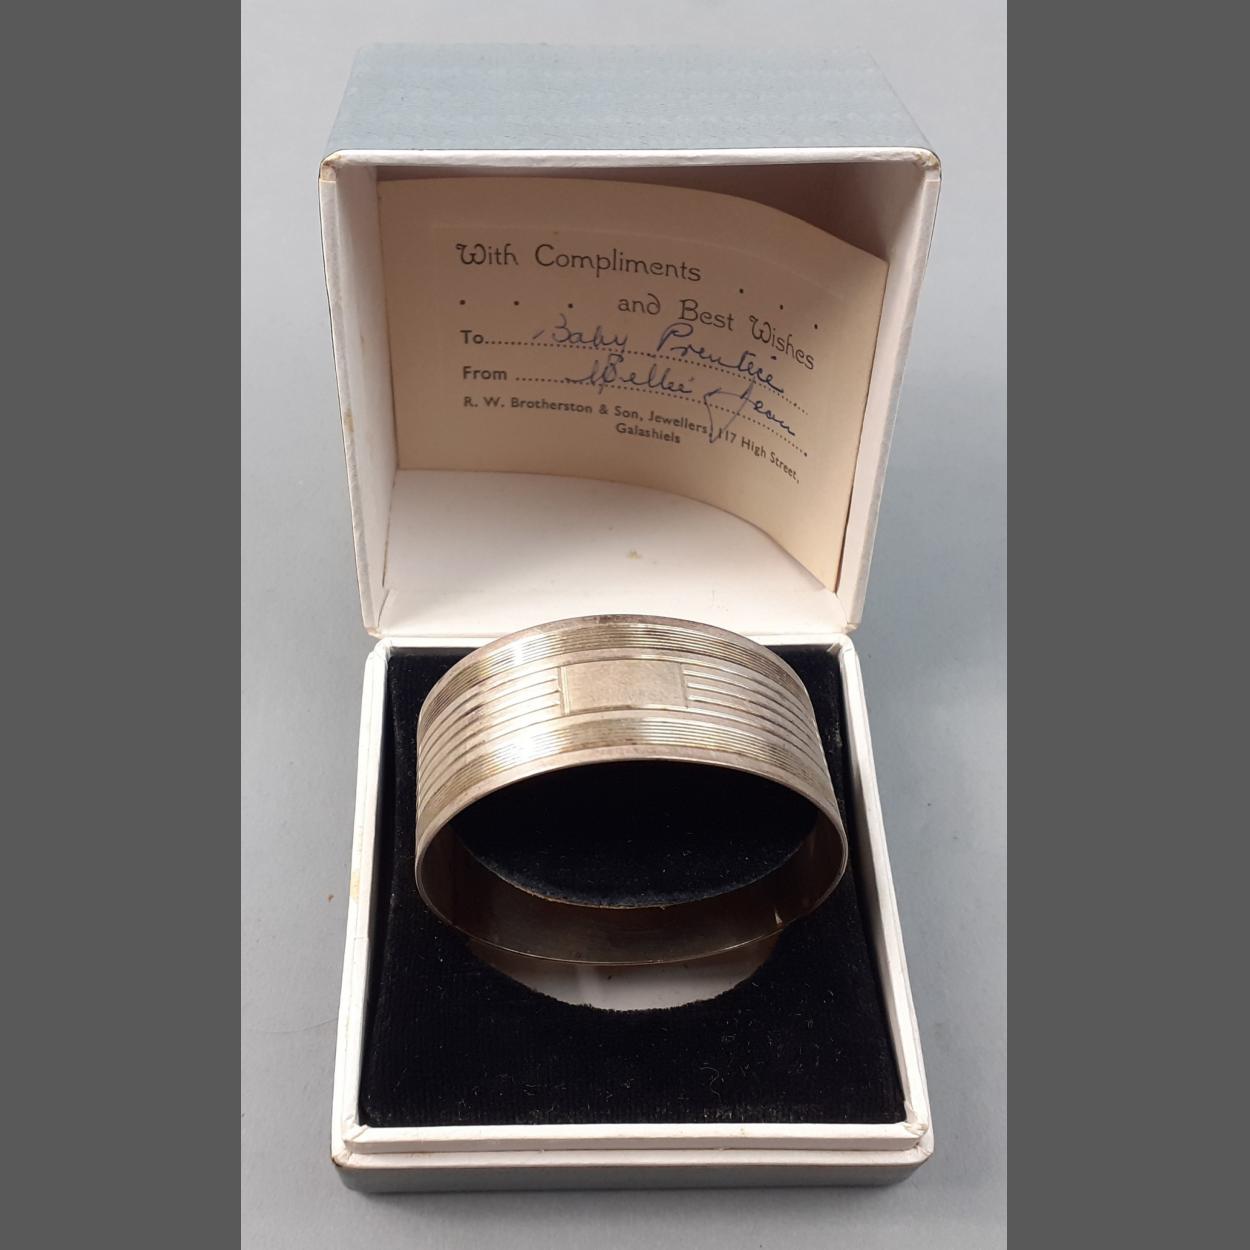 With Compliments . . .
. . . and Best Wishes
To...... Baby Prentice
From ...... & Jean
R. W. Brotherston & Son, Jewellers, 117 High Street,
Galashiels